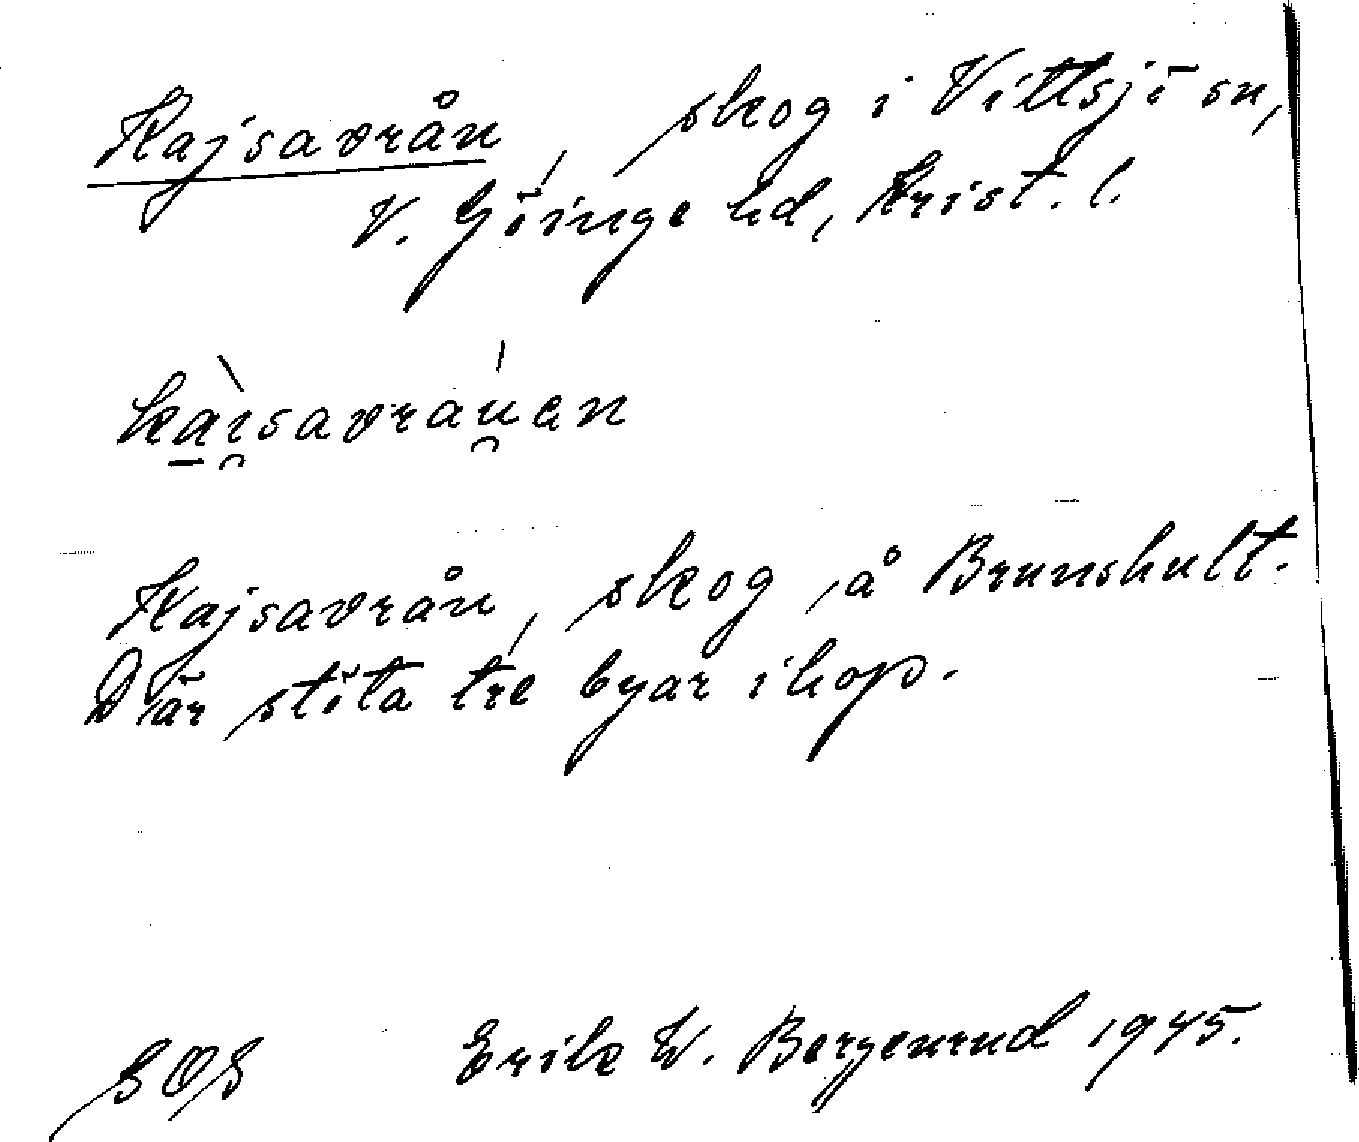 Kajsavrån, skog i Vittsjö sn,
V. Göinge hd, Krist. l.
kàı̯savráu̯ən
Kajsavrån, skog å Brunshult.
Där stöta tre byar ihop.
SOS Erik W. Bergenrud 1945.